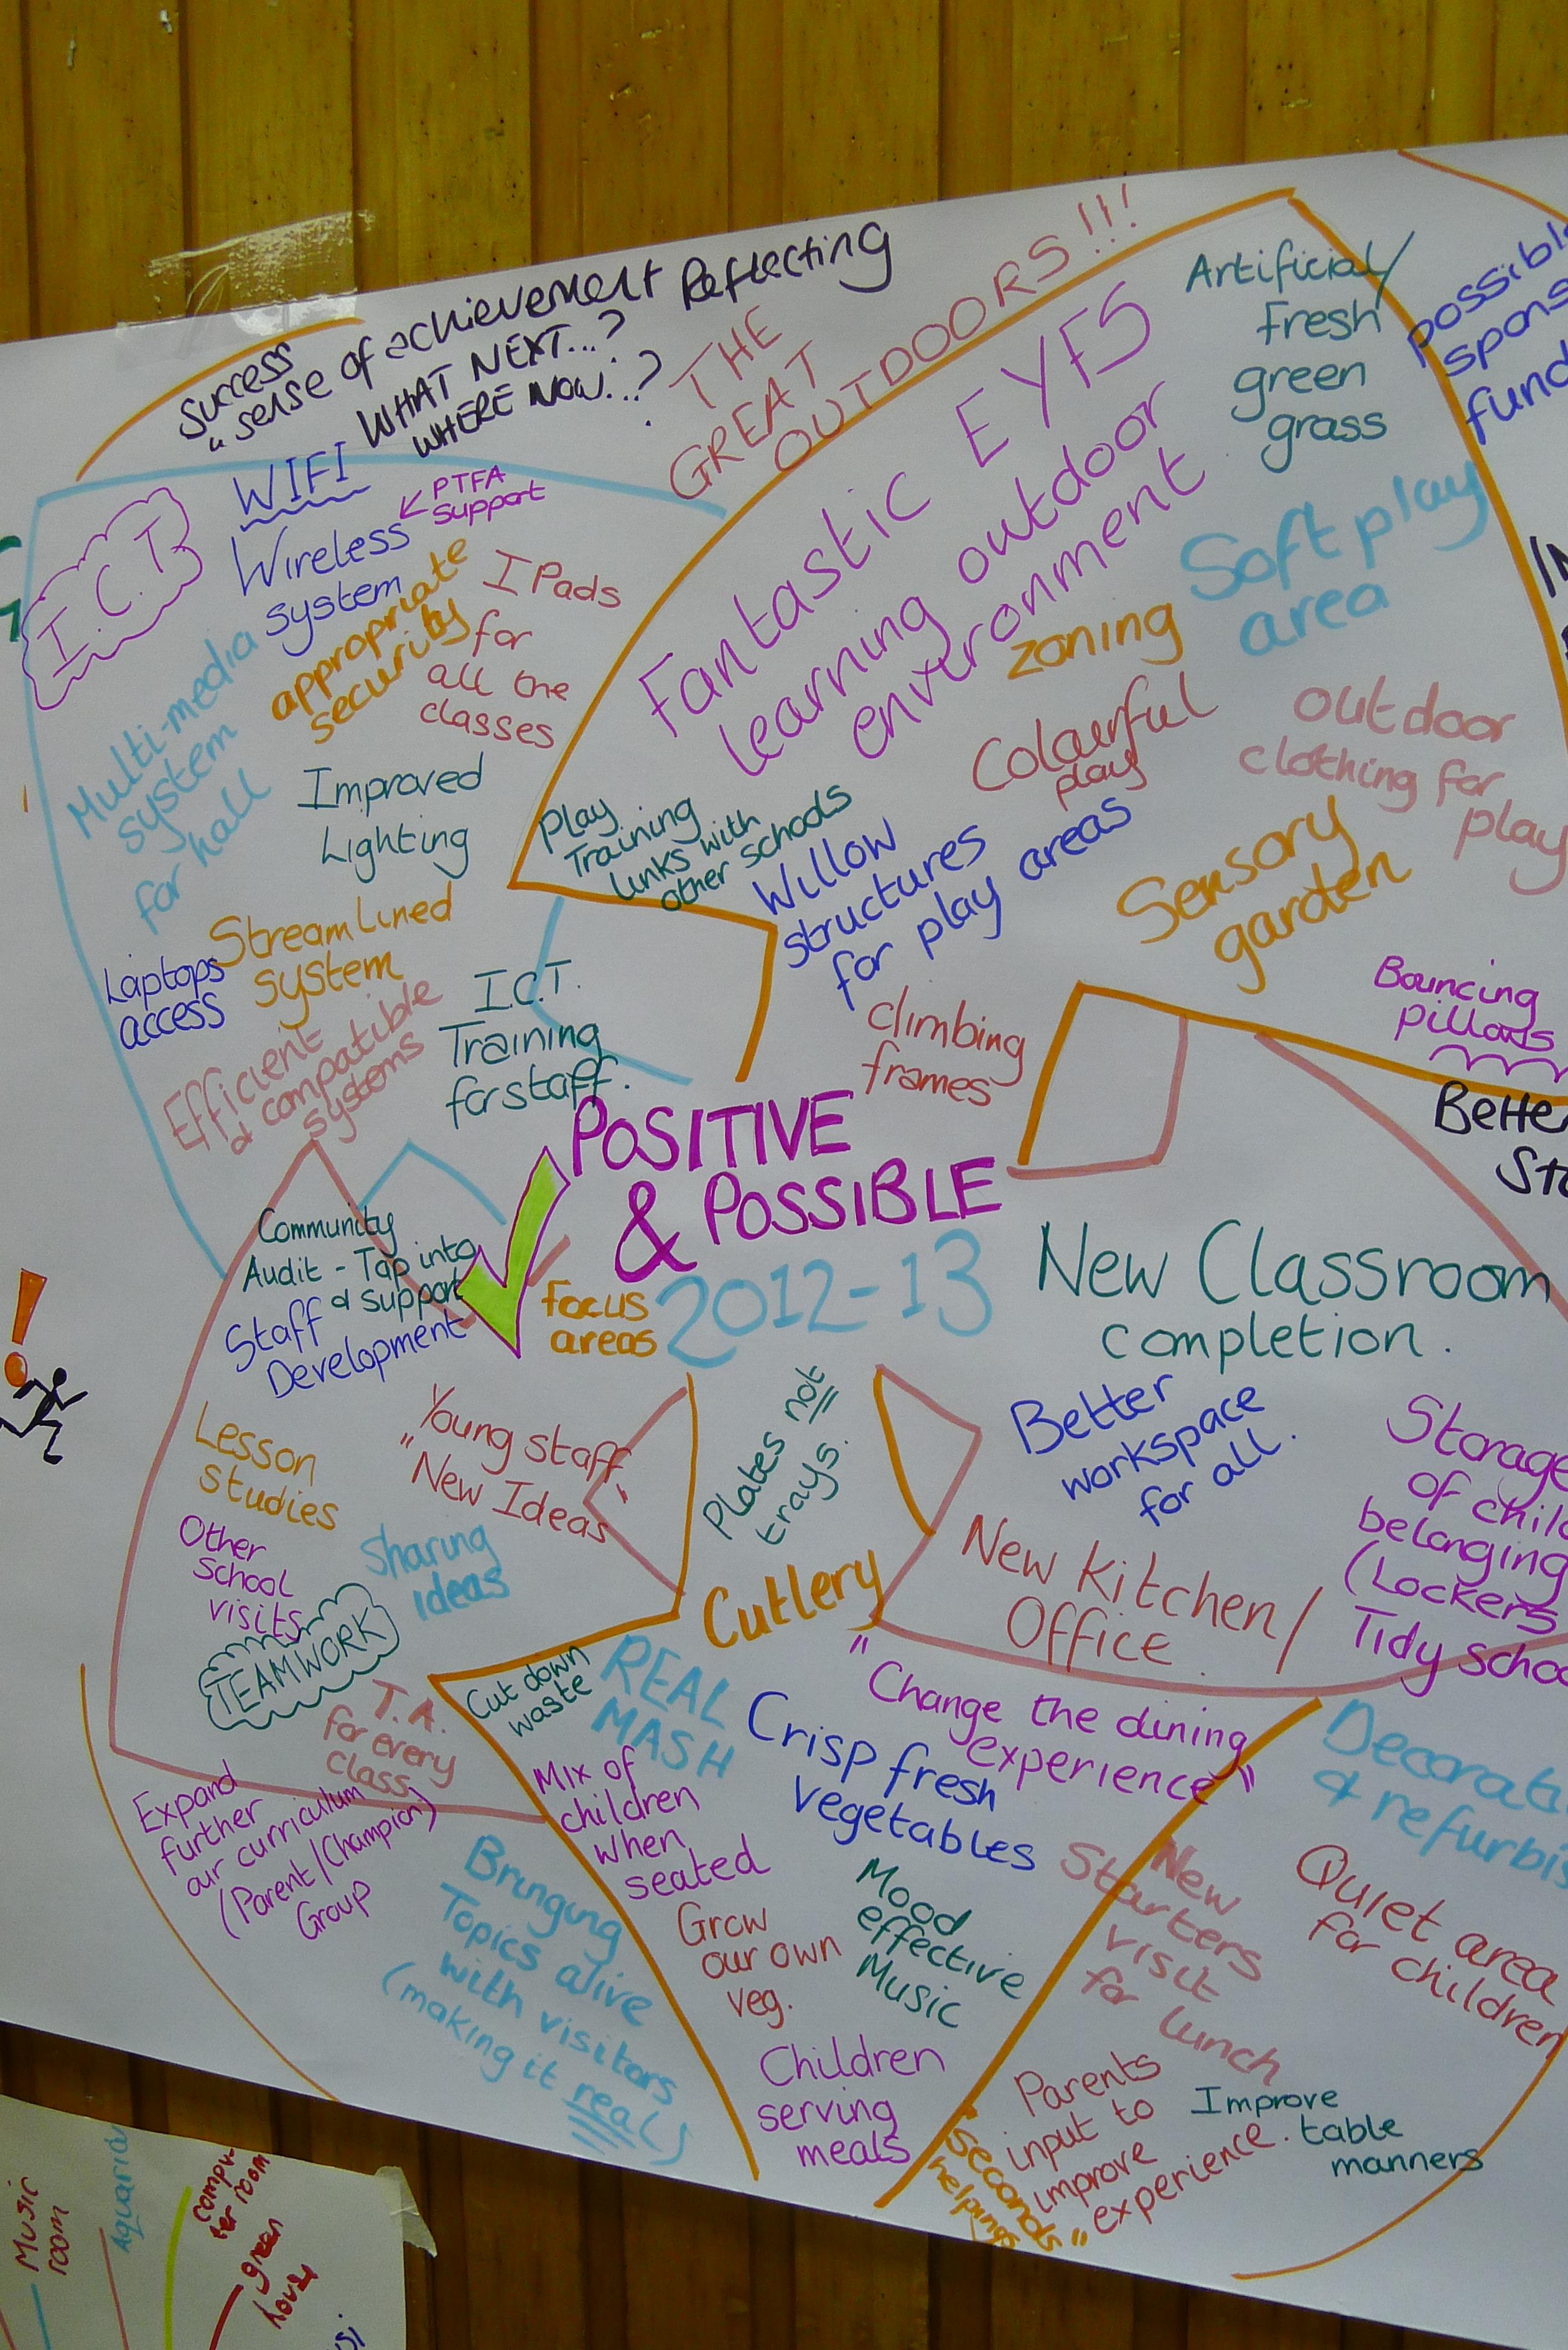 Success
"sense of achievement Reflecting
WHAT NEXT...?
WHERE NOW...?
THE
GREAT
OUTDOORS!!!
I.C.T
WIFI
PTFA
support
Wireless
system
appropriate
security
I Pads
for
all the
classes
Multi-media
system
for hall
Improved
Lighting
Stream Lined
system
Laptops
access
Efficient
& compatible
systems
I.C.T.
Training
for staff.
Fantastic EYFS
learning outdoor
environment
Artificial/
fresh
green
grass
Soft play
area
zoning
Colourful
play
outdoor
clothing for
play
Play
Training
links with
other schools
Willow
structures
for play areas
Sensory
garden
climbing
frames
Bouncing
pillows
POSITIVE
& POSSIBLE
2012-13
focus
areas
Community
Audit - Tap into
& support
Staff
Development
Lesson
studies
Young staff
"New Ideas"
Other
school
visits
Sharing
ideas
TEAMWORK
T.A.
for every
class
Expand
further
our curriculum
(Parent/Champion)
Group
Bringing
Topics alive
with visitors
(making it real)
New Classroom
completion.
Better
workspace
for all.
Storage
of
belonging
(Lockers
Tidy
New Kitchen/
Office.
Plates not
trays.
Cutlery
Cut down
waste
REAL
MASH
"Change the dining
experience"
Crisp fresh
vegetables
Mix of
children
when
seated
Grow
our own
veg.
Mood
effective
Music
Children
serving
meals
New
Starters
visit
for lunch
Quiet area
for children
Parents
input to
improve
experience.
Improve
table
manners
"Seconds"
helpings
Music
room
Aquaria
compu-
ter room
green
house